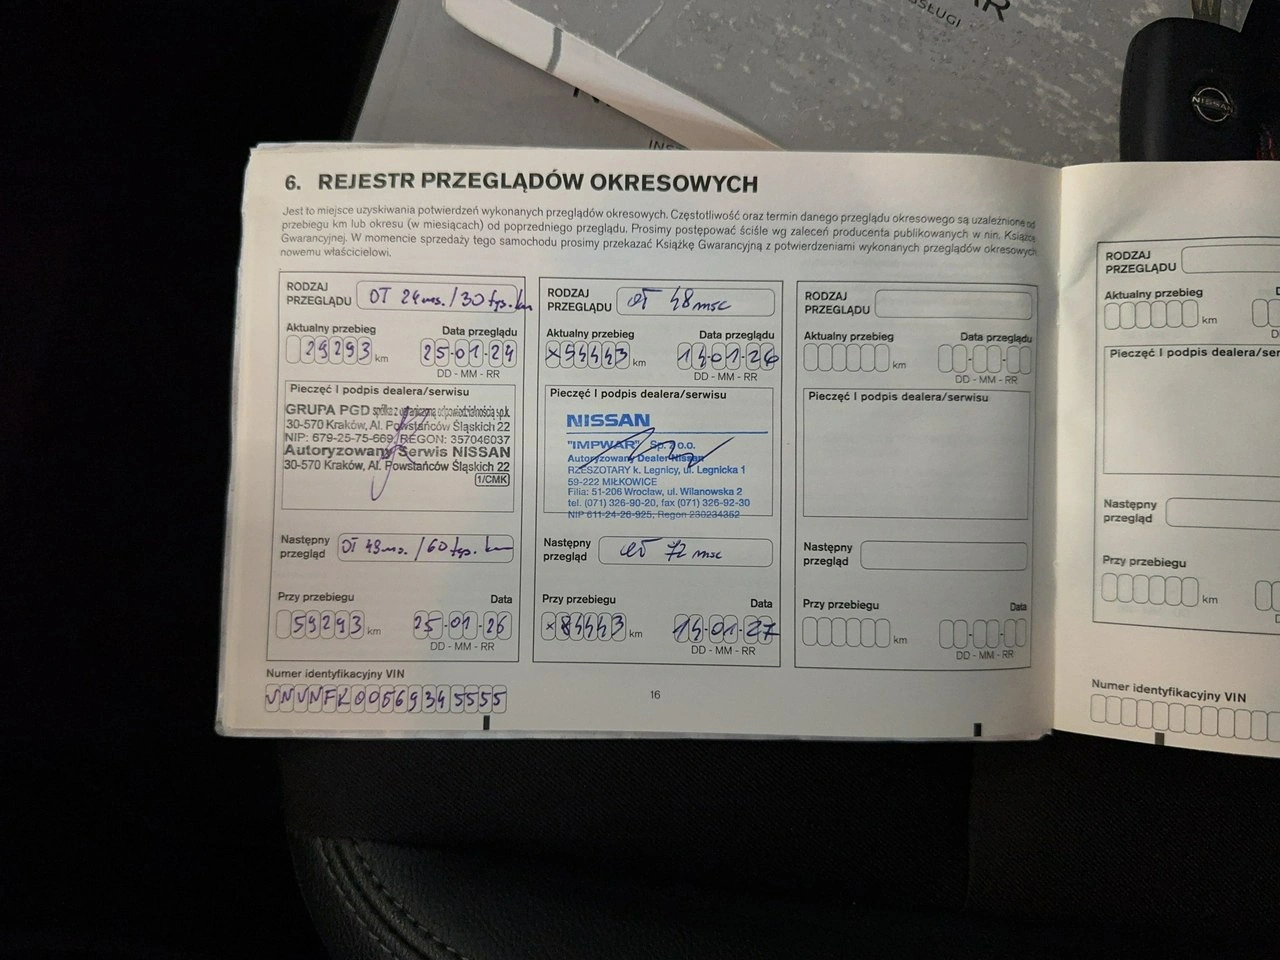 OBSŁUGI
NISSAN
6. REJESTR PRZEGLĄDÓW OKRESOWYCH
Jest to miejsce uzyskiwania potwierdzeń wykonanych przeglądów okresowych. Częstotliwość oraz termin danego przeglądu okresowego są uzależnione od
przebiegu km lub okresu (w miesiącach) od poprzedniego przeglądu. Prosimy postępować ściśle wg zaleceń producenta publikowanych w nin. Książce
Gwarancyjnej. W momencie sprzedaży tego samochodu prosimy przekazać Książkę Gwarancyjną z potwierdzeniami wykonanych przeglądów okresowych
nowemu właścicielowi.
RODZAJ
PRZEGLĄDU OT 24 ms. / 30 tys. km
Aktualny przebieg Data przeglądu
29293 km 25-01-24
DD - MM - RR
Pieczęć I podpis dealera/serwisu
GRUPA PGD spółka z ograniczoną odpowiedzialnością sp.k.
30-570 Kraków, Al. Powstańców Śląskich 22
NIP: 679-25-75-669, REGON: 357046037
Autoryzowany Serwis NISSAN
30-570 Kraków, Al. Powstańców Śląskich 22
1/CMK
Następny
przegląd OT 48 ms. / 60 tys. km
Przy przebiegu Data
59293 km 25-01-26
DD - MM - RR
Numer identyfikacyjny VIN
RODZAJ
PRZEGLĄDU OT 48 msc
Aktualny przebieg Data przeglądu
x54443 km 14-01-26
DD - MM - RR
Pieczęć I podpis dealera/serwisu
NISSAN
"IMPWAR" Sp. z o.o.
Autoryzowany Dealer Nissan
RZESZOTARY k. Legnicy, ul. Legnicka 1
59-222 MIŁKOWICE
Filia: 51-206 Wrocław, ul. Wilanowska 2
tel. (071) 326-90-20, fax (071) 326-92-30
NIP 611-24-26-925, Regon 230234352
Następny
przegląd OT 72 msc
Przy przebiegu Data
x84443 km 14-01-27
DD - MM - RR
RODZAJ
PRZEGLĄDU
Aktualny przebieg Data przeglądu
km
DD - MM - RR
Pieczęć I podpis dealera/serwisu
Następny
przegląd
Przy przebiegu Data
km
DD - MM - RR
16
RODZAJ
PRZEGLĄDU
Aktualny przebieg
km
Pieczęć I podpis dealera/ser
Następny
przegląd
Przy przebiegu
km
Numer identyfikacyjny VIN